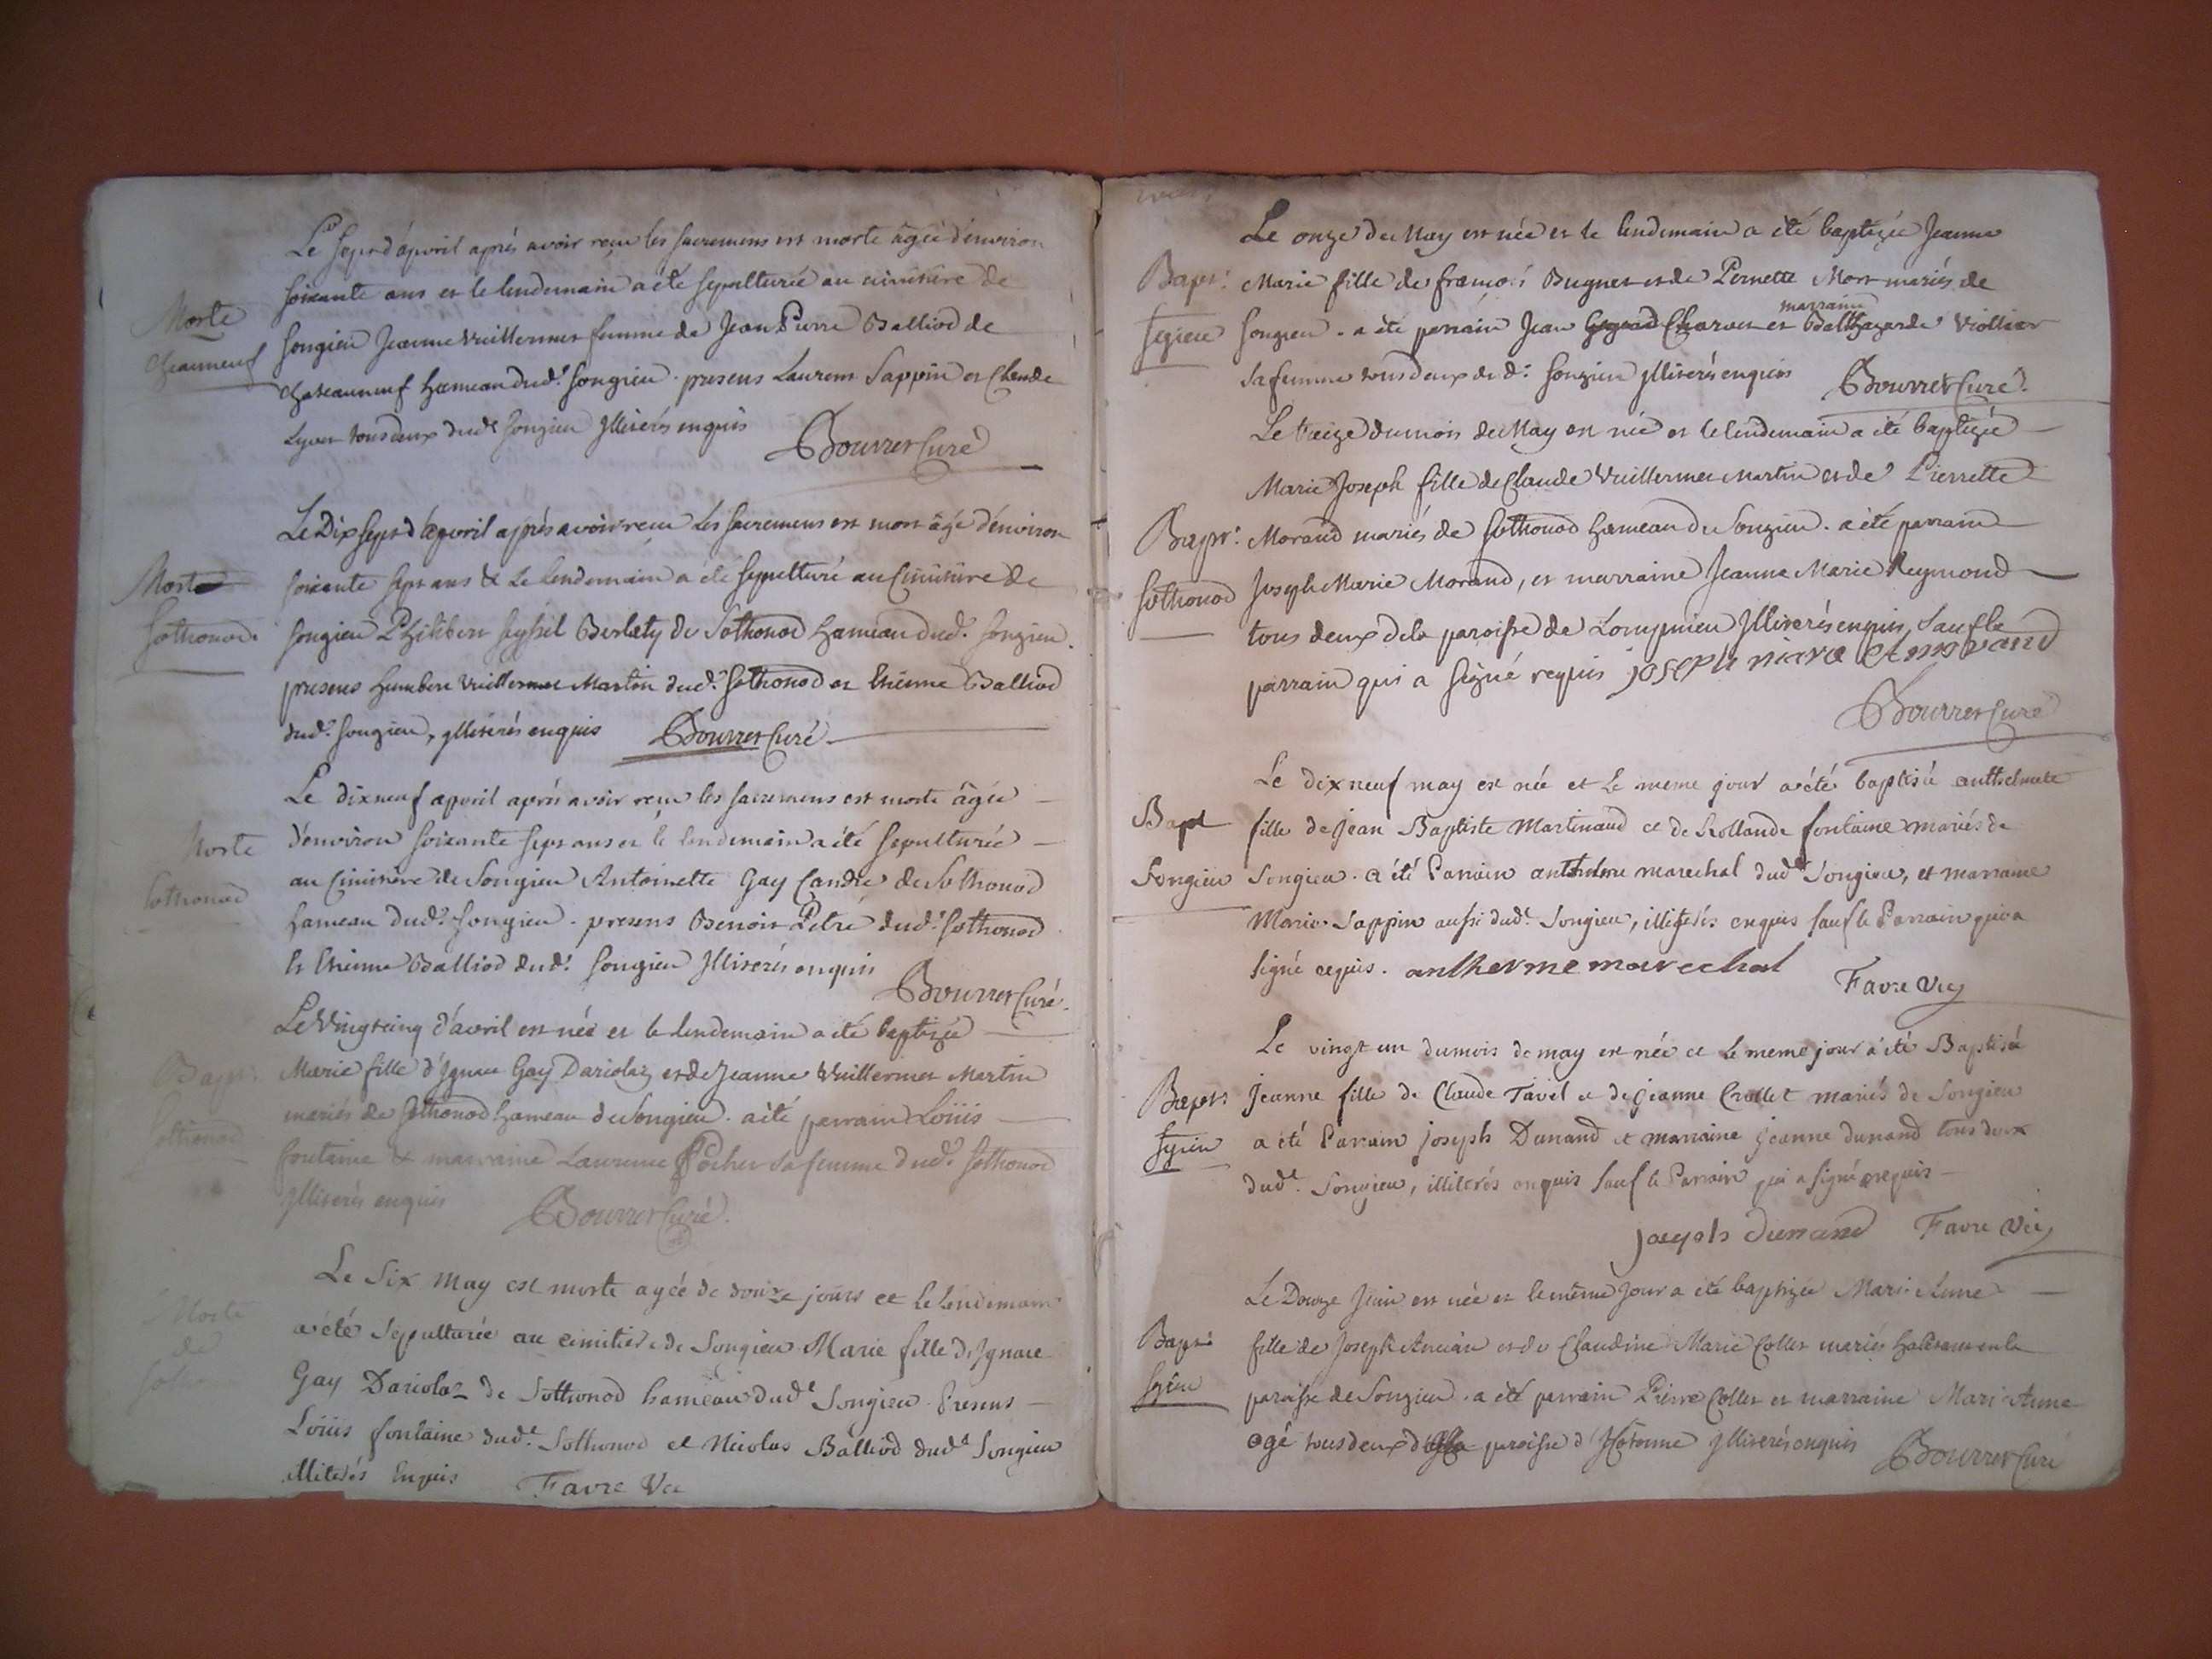 Le sept d'apvril aprés avoir reçu les sacremens est morte âgée d'environ
soixante ans et le lendemain a été sepulturée au cimitiere de
Morte
Songieu Jeanne Vuillermet femme de Jean Pierre Balliod de
Chateauneuf hameau dud.t Songieu . presens Laurent Sappin et Claude
Lyvet tous deux dud.t Songieu Jlliterés enquis
Bourret Curé
Le Dix sept d'apvril aprés avoir reçu les sacremens est mort âgé d'environ
Mort
soixante sept ans & le lendemain a été sepulturé au Cimitiere de
Sothonod.
Songieu Philibert Seyssel Berlety de Sothonod hameau dud.t Songieu.
presens humbert Vuillermet Martin dud.t Sothonod et Etienne Balliod
dud.t Songieu, jlliterés enquis Bourret Curé
Le dixneuf apvril aprés avoir reçu les sacremens est morte âgée
Morte
d'environ soixante sept ans et le lendemain a été sepulturée
Sothonod
au Cimitiere de Songieu Antoinette Gay Candre de Sothonod
hameau dud.t Songieu . presens Benoit Petre dud.t Sothonod
et Etienne Balliod dud.t Songieu Jlliterés enquis
Bourret Curé.
Le Vingtcinq d'avril est née et le lendemain a été baptizée
Bapt:
Marie fille d'Ignace Gay Dariolaz et de Jeanne Vuillermet Martin
Sothonod
mariés de Sothonod hameau de Songieu . a été parrain Loüis
fontaine & marraine Laurence Pocher sa femme dud.t Sothonod
Jlliterés enquis Bourret Curé.
Le Six may est morte agée de douze jours et le lendemain
Morte
de
a été sepulturée au cimitiere de Songieu Marie fille d'Ignace
Gay Dariolaz de Sothonod hameau dud.t Songieu . Presens
Loüis fontaine dud.t Sothonod et Nicolas Balliod dud.t Songieu
illiterés Enquis Favre Vic
Le onze de May est née et le lendemain a été baptizée Jeanne
Bapt: Marie fille de françois Bugnet et de Pernette Mort mariés de
marraine
Songieu . a été parrain Jean Charvet et Balthazarde Viollier
sa femme tous deux dud.t Songieu jlliterés enquis Bourret Curé.
Le treize du mois de May est née et le lendemain a été baptizée
Marie Joseph fille de Claude Vuillermet Martin et de Pierrette
Bapt: Morand mariés de Sothonod hameau de Songieu . a été parrain
Sothonod Joseph Marie Morand, et marraine Jeanne Marie Reymond
tous deux de la paroisse de Lompnieu Jlliterés enquis, Sauf le
parrain qui a signé requis joseph marie Morand
Bourret Curé
Le dix neuf may est née et le meme jour a été baptisée anthelmete
Bapt fille de jean Baptiste Martinaud et de Rollande fontaine mariés de
Songieu Songieu . a été Parrain anthelme marechal dud.t Songieu, et marraine
Marie Sappin aussi dud.t Songieu, illiterés enquis sauf le Parrain qui a
signé requis . anthelme marechal Favre Vic
Le vingt un du mois de may est née et le meme jour a été Baptisée
Bapt: jeanne fille de Claude Tavel et de jeanne Crollet mariés de Songieu
a été Parrain joseph Dunand et marraine jeanne dunand tous deux
dud.t Songieu, illiterés enquis sauf le Parrain qui a signé requis
joseph dunand Favre Vic
Le Douze Juin est née et le même jour a été baptizée Marie Anne
Bapt: fille de Joseph Ancian et de Claudine Marie Collet mariés habitans en la
paroisse de Songieu . a été parrain Pierre Collet et marraine Marie Anne
ogé tous deux de la paroisse d'Hotonne Jlliterés enquis Bourret Curé